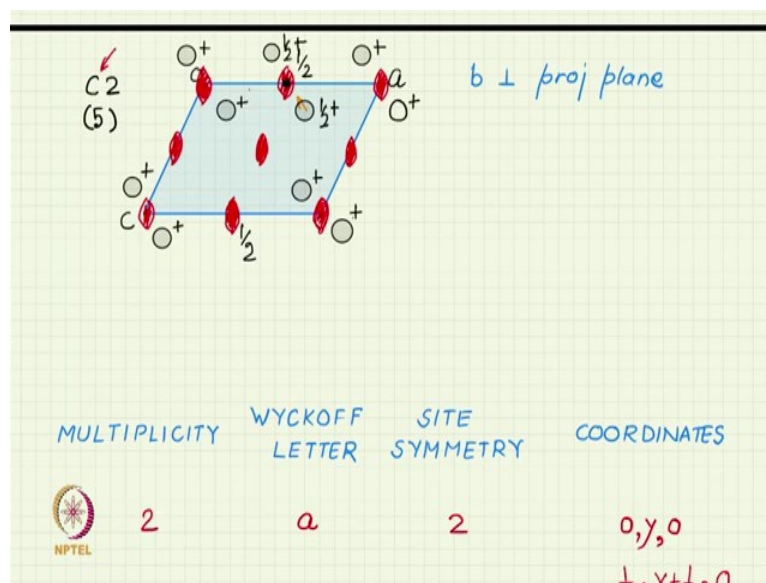 + ½+ 1/2 +
C2 a b ⊥ proj plane
(5) + ½+ O+
+ +
C + 1/2 +
MULTIPLICITY WYCKOFF LETTER SITE SYMMETRY COORDINATES
2 a 2 0,y,0
NPTEL